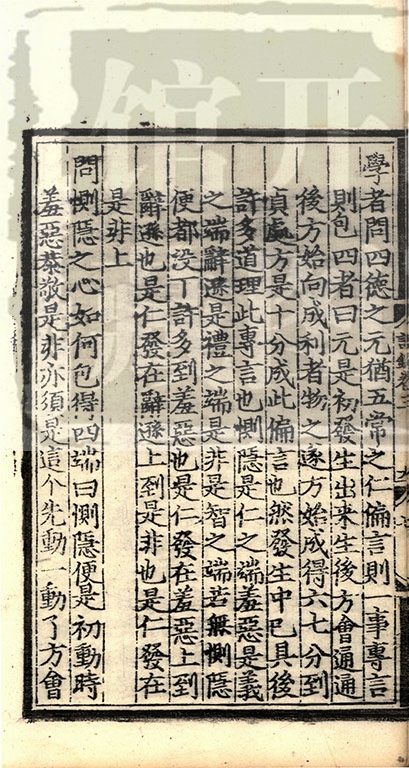 學者問四德之元猶五常之仁偏言則一事專言
則包四者曰元是初發生出来生後方會通通
後方始向成利者物之遂方始成得六七分到
貞處方是十分成此偏言也然發生中已具後
許多道理此專言也惻隱是仁之端羞惡是義
之端辭遜是禮之端是非是智之端若無惻隱
便都没了許多到羞惡也是仁發在羞惡上到
辭遜也是仁發在辭遜上到是非也是仁發在
是非上
問惻隱之心如何包得四端曰惻隱便是初動時
羞惡恭敬是非亦須是這个先動一動了方會